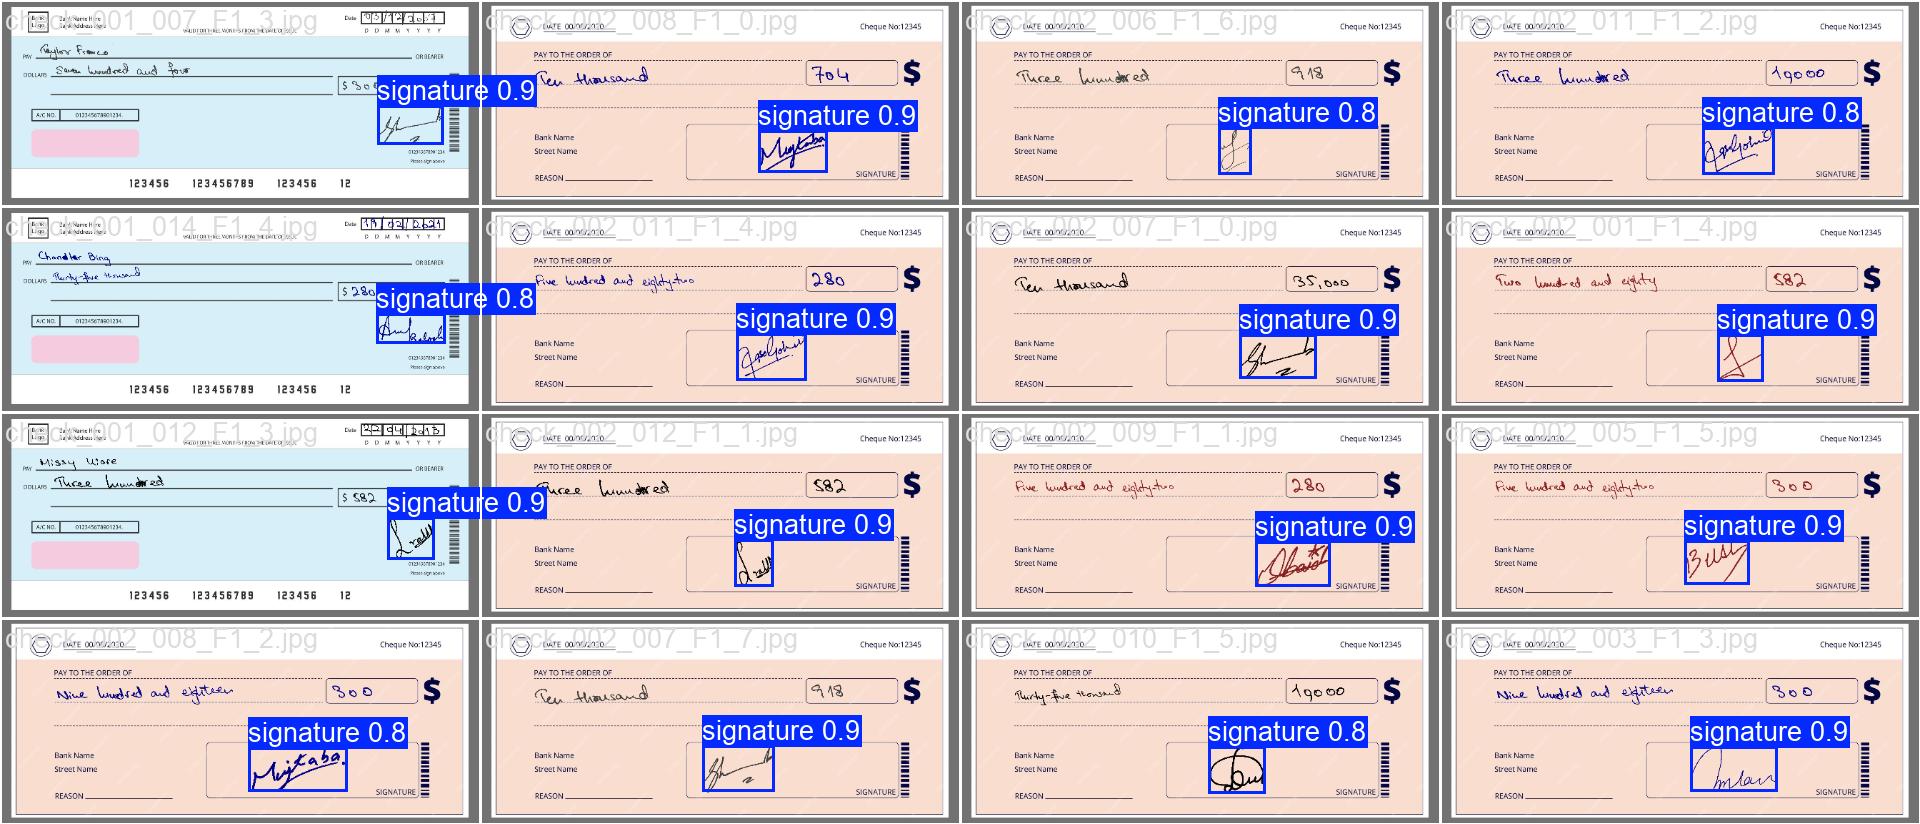 check_001_007_F1_3.jpg
Bank Logo
Bank Name Here
Bank Address Here
Date
VALID FOR THREE MONTHS FROM THE DATE OF ISSUE
D D M M Y Y Y Y
PAY Taylor Franco OR BEARER
DOLLARS Seven hundred and four
$ 300
signature 0.9
A/C NO. 012345678901234.
01231078901234
Please sign above
123456 123456789 123456 12
check_002_008_F1_0.jpg
DATE 00/00/2020
Cheque No:12345
PAY TO THE ORDER OF
Ten thousand 704 $
signature 0.9
Bank Name
Mujtaba
Street Name
REASON SIGNATURE
check_002_006_F1_6.jpg
DATE 00/00/2020
Cheque No:12345
PAY TO THE ORDER OF
Three hundred 918 $
signature 0.8
Bank Name
Street Name
REASON SIGNATURE
check_002_011_F1_2.jpg
DATE 00/00/2020
Cheque No:12345
PAY TO THE ORDER OF
Three hundred 19000 $
signature 0.8
Bank Name
Street Name
REASON SIGNATURE
check_001_014_F1_4.jpg
Bank Logo
Bank Name Here
Bank Address Here
Date 19/02/2021
VALID FOR THREE MONTHS FROM THE DATE OF ISSUE
D D M M Y Y Y Y
PAY Chandler Bing OR BEARER
DOLLARS Thirty-five thousand
$ 280
signature 0.8
A/C NO. 012345678901234.
01231078901234
Please sign above
123456 123456789 123456 12
check_002_011_F1_4.jpg
DATE 00/00/2020
Cheque No:12345
PAY TO THE ORDER OF
Five hundred and eighty-two 280 $
signature 0.9
Bank Name
Street Name
REASON SIGNATURE
check_002_007_F1_0.jpg
DATE 00/00/2020
Cheque No:12345
PAY TO THE ORDER OF
Ten thousand 35,000 $
signature 0.9
Bank Name
Street Name
REASON SIGNATURE
check_002_001_F1_4.jpg
DATE 00/00/2020
Cheque No:12345
PAY TO THE ORDER OF
Two hundred and eighty 582 $
signature 0.9
Bank Name
Street Name
REASON SIGNATURE
check_001_012_F1_3.jpg
Bank Logo
Bank Name Here
Bank Address Here
Date 22/04/2013
VALID FOR THREE MONTHS FROM THE DATE OF ISSUE
D D M M Y Y Y Y
PAY Missy OR BEARER
DOLLARS Three hundred
$ 582
signature 0.9
A/C NO. 012345678901234.
01231078901234
Please sign above
123456 123456789 123456 12
check_002_012_F1_1.jpg
DATE 00/00/2020
Cheque No:12345
PAY TO THE ORDER OF
Three hundred 582 $
signature 0.9
Bank Name
Street Name
REASON SIGNATURE
check_002_009_F1_1.jpg
DATE 00/00/2020
Cheque No:12345
PAY TO THE ORDER OF
Five hundred and eighty-two 280 $
signature 0.9
Bank Name
Street Name
REASON SIGNATURE
check_002_005_F1_5.jpg
DATE 00/00/2020
Cheque No:12345
PAY TO THE ORDER OF
Five hundred and eighty-two 300 $
signature 0.9
Bank Name
Street Name
REASON SIGNATURE
check_002_008_F1_2.jpg
DATE 00/00/2020
Cheque No:12345
PAY TO THE ORDER OF
Nine hundred and eighteen 300 $
signature 0.8
Bank Name
Mujtaba.
Street Name
REASON SIGNATURE
check_002_007_F1_7.jpg
DATE 00/00/2020
Cheque No:12345
PAY TO THE ORDER OF
Ten thousand 918 $
signature 0.9
Bank Name
Street Name
REASON SIGNATURE
check_002_010_F1_5.jpg
DATE 00/00/2020
Cheque No:12345
PAY TO THE ORDER OF
Thirty-five thousand 19000 $
signature 0.8
Bank Name
Street Name
REASON SIGNATURE
check_002_003_F1_3.jpg
DATE 00/00/2020
Cheque No:12345
PAY TO THE ORDER OF
Nine hundred and eighteen 300 $
signature 0.9
Bank Name
Street Name
REASON SIGNATURE